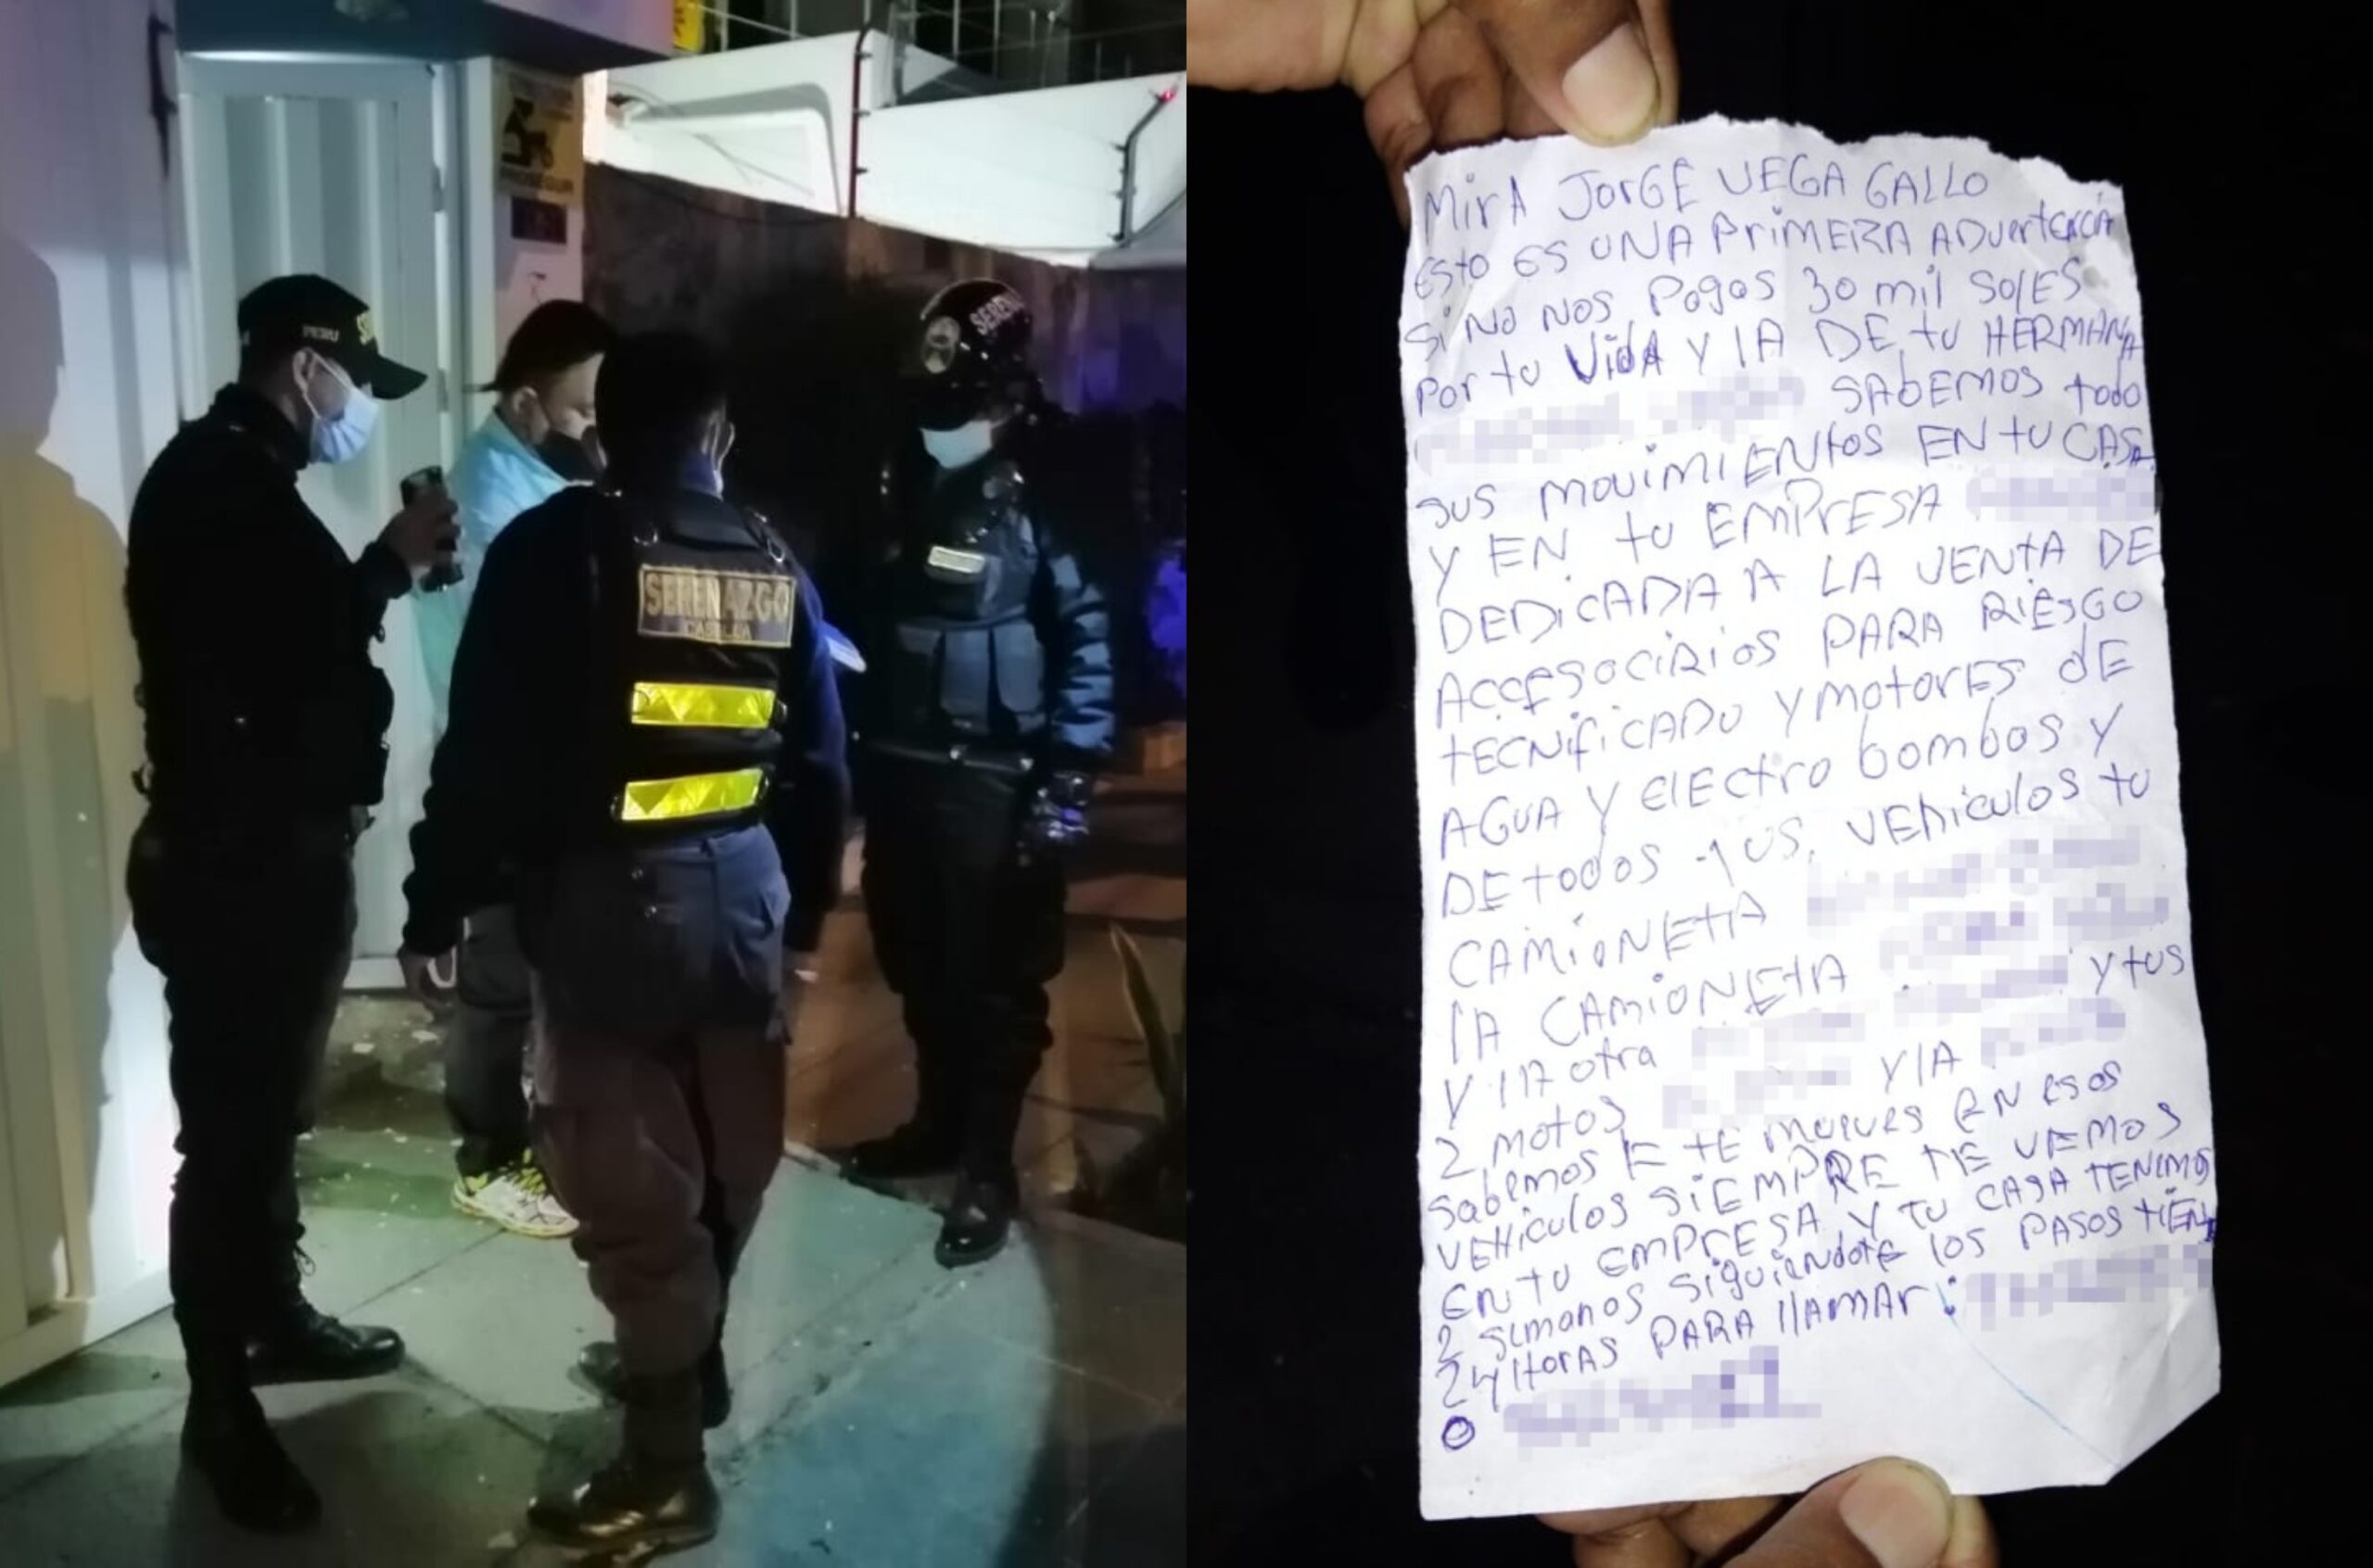 PERU
SEREN
SERENAZGO
CASTILLA
PROSEGUR
MirA JorGE VEGA GALLO
ESto ES UNA PriMERA ADvertencia
si No Nos Pagas 30 mil SolES
Por tu VidA Y lA DE tu HERMANA
SAbEMOS todo
sus moviMiENtos EN tu CASA
Y EN tu EMPrESA
DEDiCADA A LA VENtA DE
ACCESOCIRIOS PARA RIESGO
tECNifiCADO Y MotorES dE
AGUA Y ElEctro bombas Y
DE todos tus VEhiculos tu
CAMiONEtA
lA CAMiONEtA
Y lA otra Y tus
2 motos Y lA
SabEmos E tE muEvEs EN Esos
VEHiculos SiEMPRE tE VEMOS
EN tu EMPrESA Y tu CASA TENEMOS
2 sEmanas siguiENdotE los PASOS tiEN
24 Horas PARA llAMAr:
O